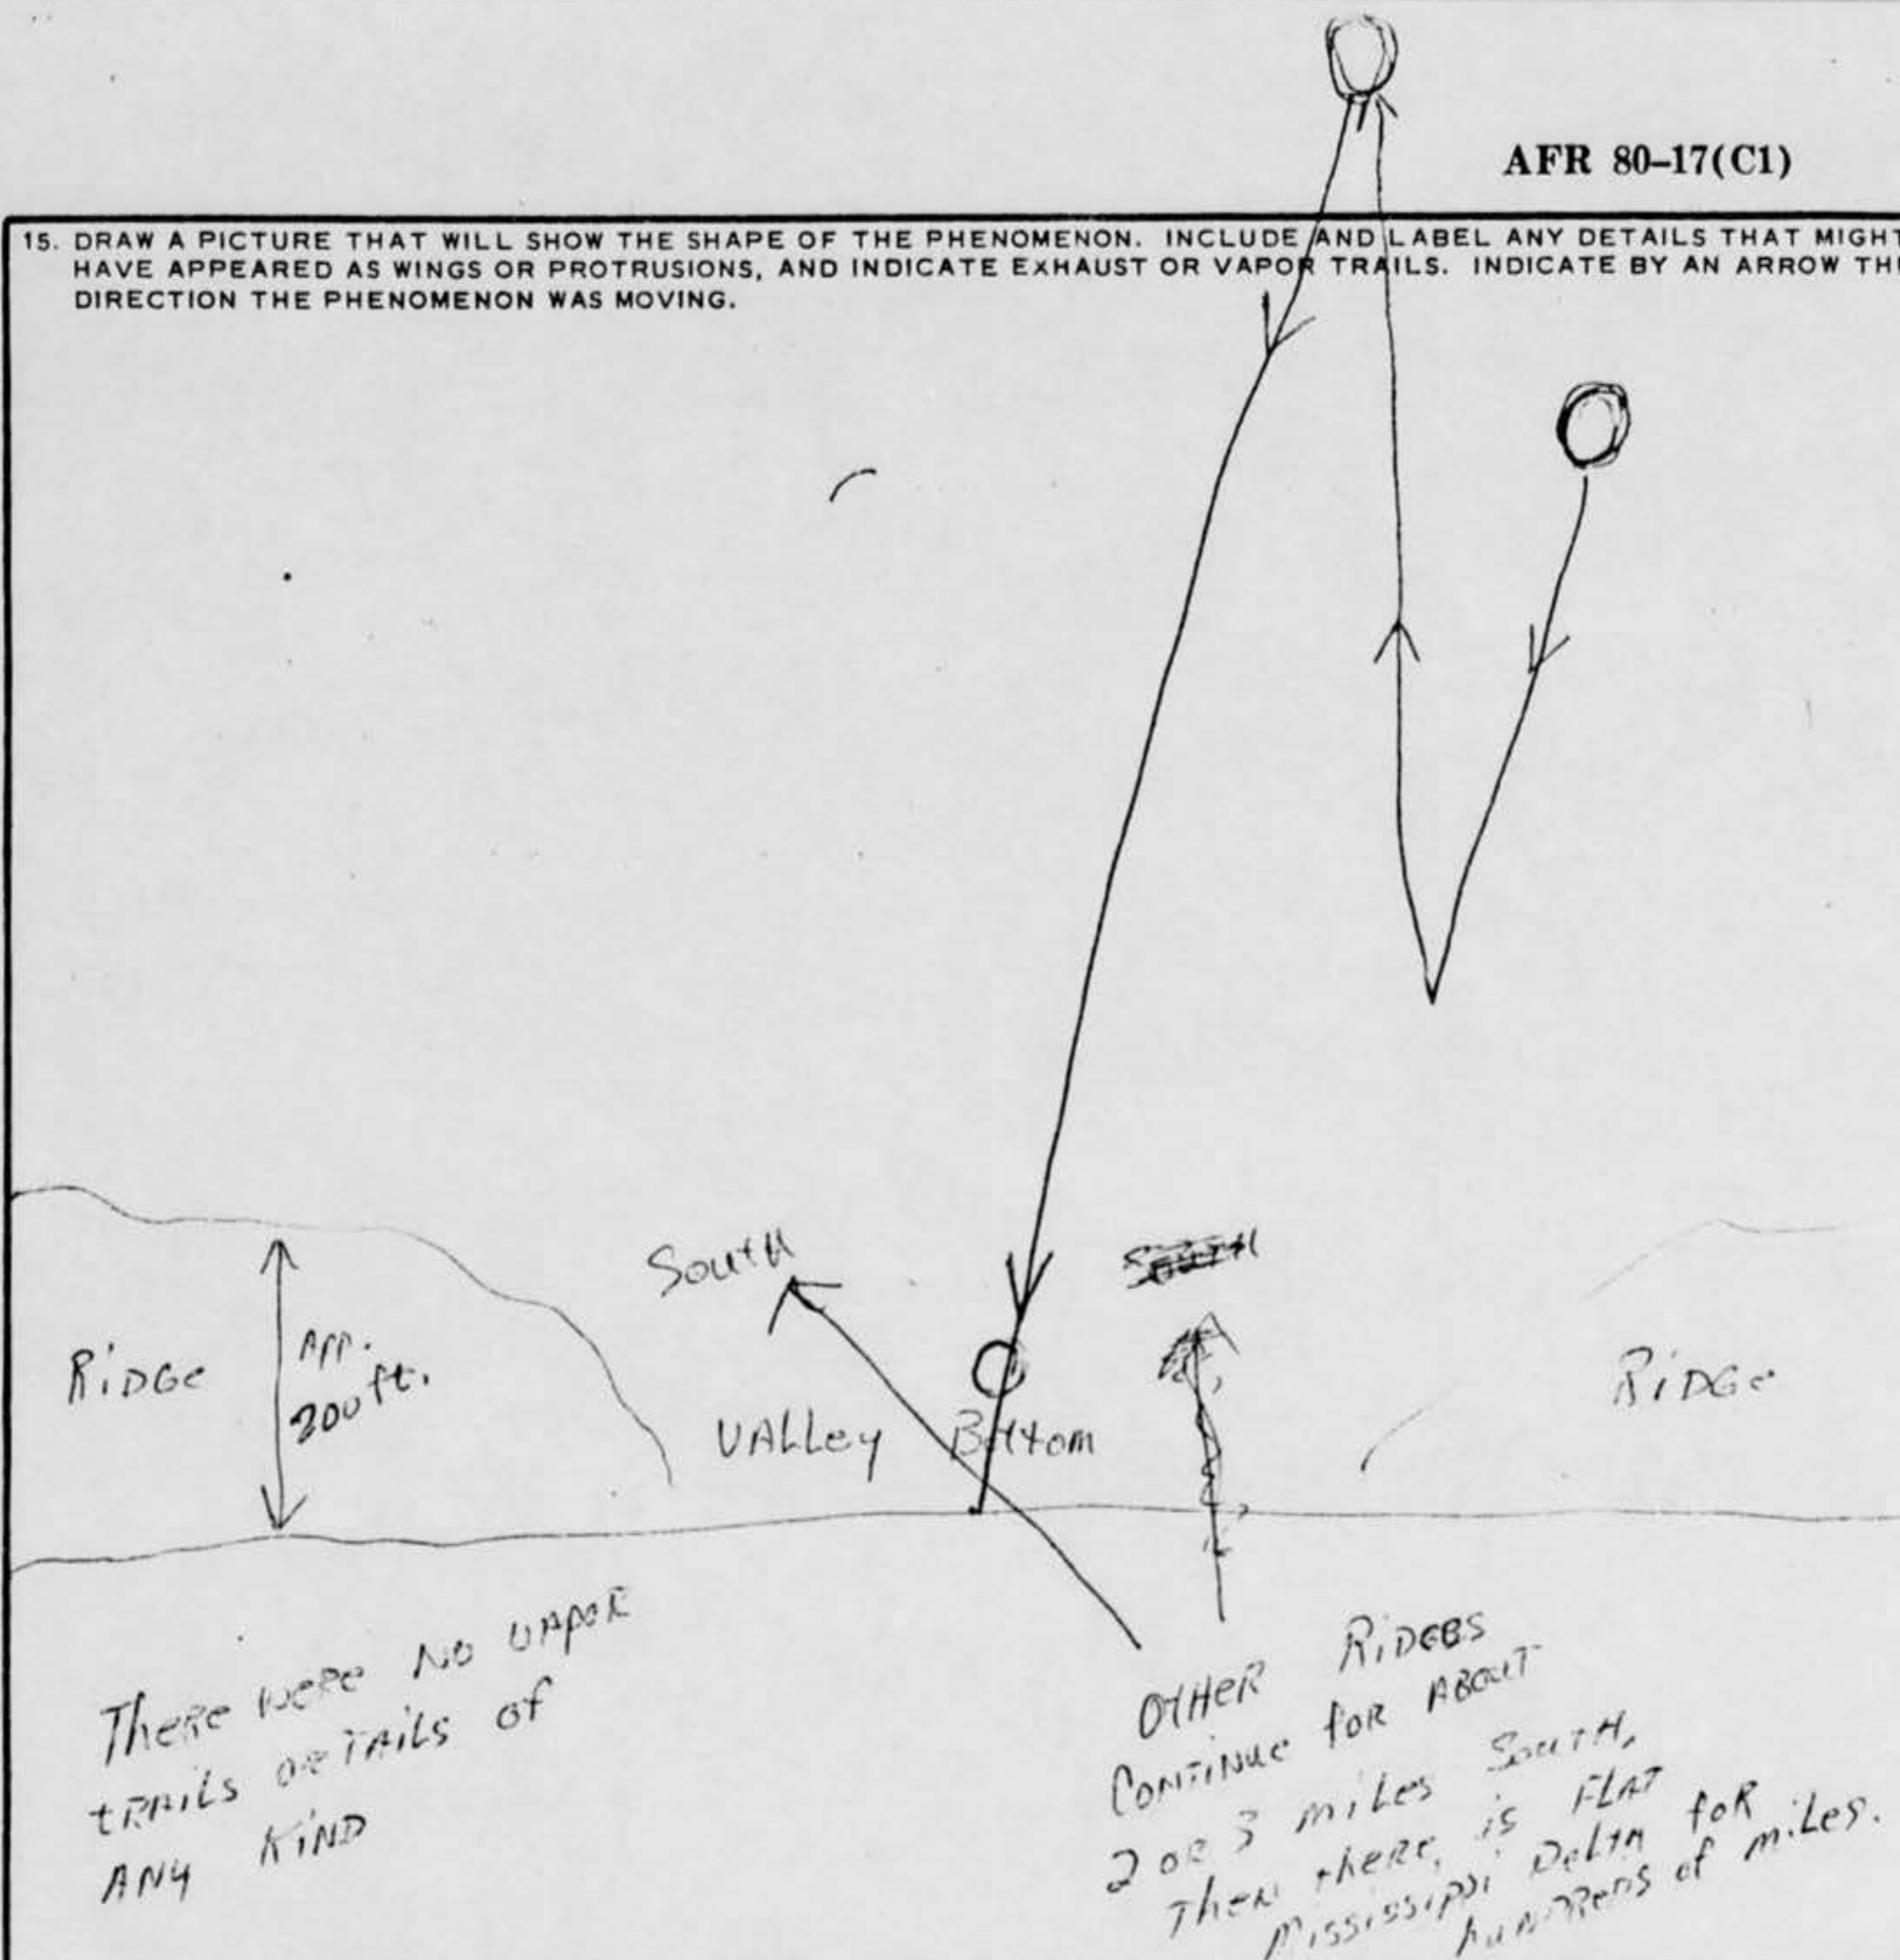 AFR 80–17(C1)
15. DRAW A PICTURE THAT WILL SHOW THE SHAPE OF THE PHENOMENON. INCLUDE AND LABEL ANY DETAILS THAT MIGHT
HAVE APPEARED AS WINGS OR PROTRUSIONS, AND INDICATE EXHAUST OR VAPOR TRAILS. INDICATE BY AN ARROW THE
DIRECTION THE PHENOMENON WAS MOVING.
South
South
RiDGe
APP.
200 ft.
VALLey Bottom
RiDGe
There were No VAPOR
tRAiLS OR TAiLS of
ANY KiND
OtHeR RiDGES
CONTiNUe foR ABOUT
2 OR 3 miLes SOUTH,
Then theRe, is FLAT
Mississippi DeLtA foR
hunDReDS of miLes.